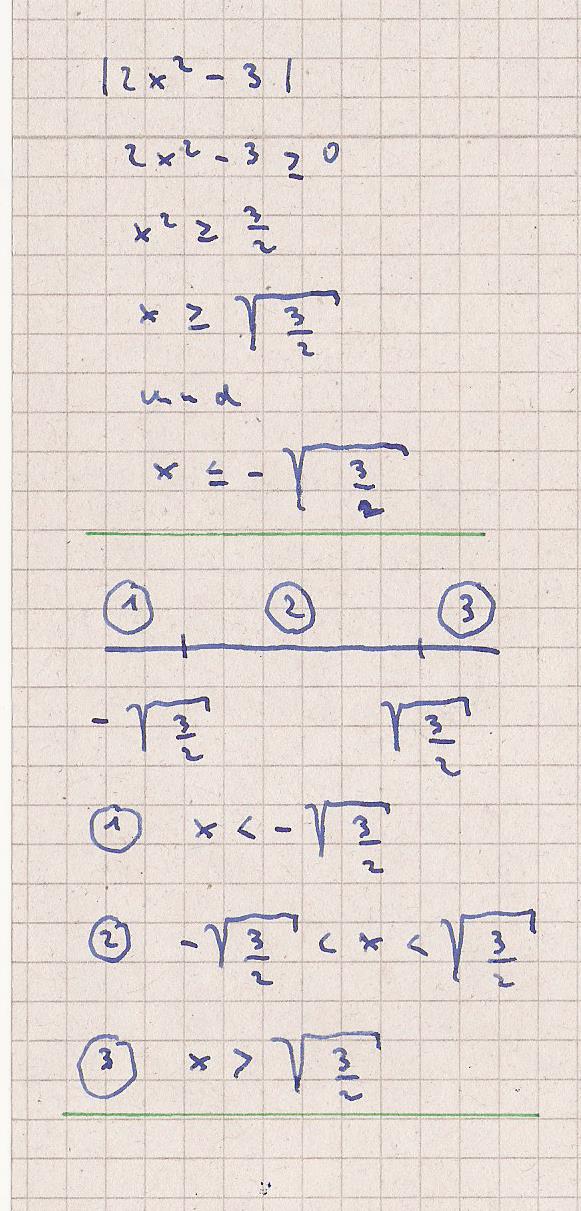 |2x² - 3|
2x² - 3 ≥ 0
x² ≥ 3/2
x ≥ √(3/2)
und
x ≤ - √(3/2)
① ② ③
- √(3/2) √(3/2)
① x < - √(3/2)
② - √(3/2) < x < √(3/2)
③ x > √(3/2)